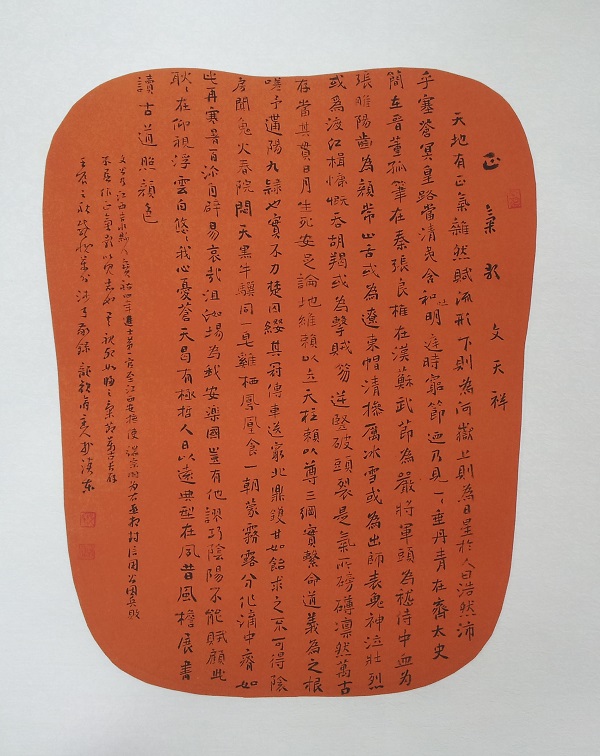 正氣歌 文天祥
天地有正氣雜然賦流形下則為河嶽上則為日星於人曰浩然沛
乎塞蒼冥皇路當清夷含和吐明庭時窮節乃見一一垂丹青在齊太史
簡在晉董狐筆在秦張良椎在漢蘇武節為嚴將軍頭為嵇侍中血為
張睢陽齒為顏常山舌或為遼東帽清操厲冰雪或為出師表鬼神泣壯烈
或為渡江楫慷慨吞胡羯或為擊賊笏逆豎破頭裂是氣所磅礴凜然萬古
存當其貫日月生死安足論地維賴以立天柱賴以尊三綱實繫命道義為之根
嗟予遘陽九隸也實不力楚囚纓其冠傳車送窮北鼎鑊甘如飴求之不可得陰
房闃鬼火春院閟天黑牛驥同一皁雞栖鳳凰食一朝蒙霧露分作溝中瘠如
此再寒暑百沴自辟易哀哉沮洳場為我安樂國豈有他謬巧陰陽不能賊顧此
耿耿在仰視浮雲白悠悠我心憂蒼天曷有極哲人日以遠典型在夙昔風檐展書
讀古道照顏色
文公江西吉水縣人寶祐四年進士第一官至江西安撫使端宗時為右丞相封信國公因兵敗
不屈作正氣歌以見志